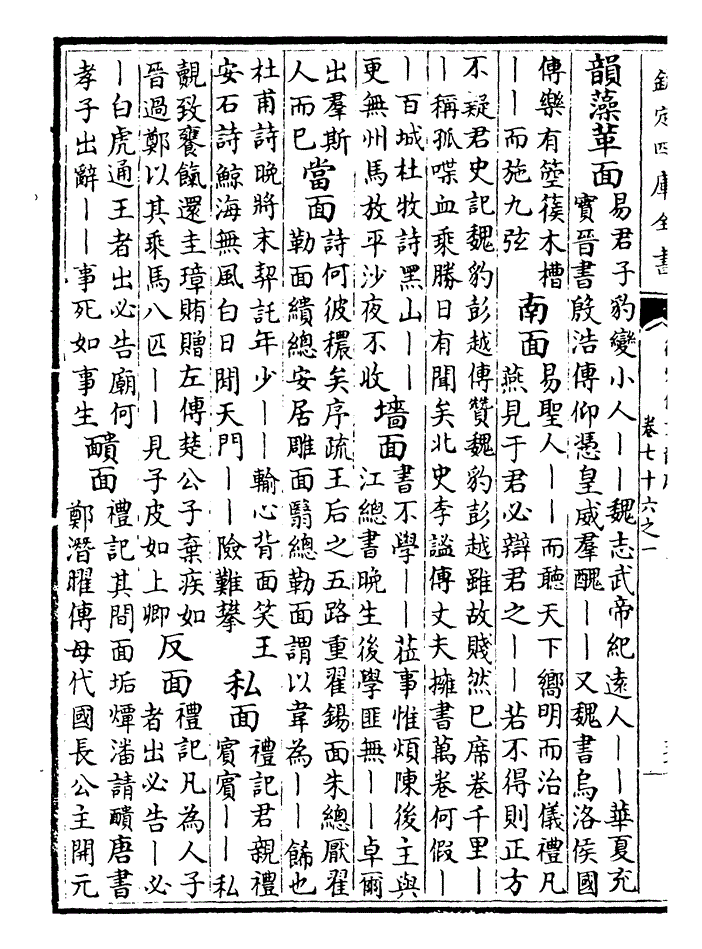 欽定四庫全書
卷七十六之一
韻藻革面
易君子豹變小人——魏志武帝紀遠人——華夏充
實晉書殷浩傳仰憑皇威羣醜——又魏書烏洛侯國
傳樂有箜篌木槽
——而施九弦
南面
易聖人——而聽天下嚮明而治儀禮凡
燕見于君必辯君之——若不得則正方
不疑君史記魏豹彭越傳贊魏豹彭越雖故賤然已席卷千里—
—稱孤喋血乘勝日有聞矣北史李謐傳丈夫擁書萬卷何假—
—百城杜牧詩黑山——
更無州馬放平沙夜不收
墻面
書不學——莅事惟煩陳後主與
江總書晚生後學匪無——卓爾
出羣斯
人而已
當面
詩何彼穠矣序疏王后之五路重翟錫面朱總厭翟
勒面繢總安居雕面鷖總勒面謂以韋為——飾也
杜甫詩晚將末契託年少——輸心背面笑王
安石詩鯨海無風白日閒天門——險難攀
私面
禮記君親禮
賓賓——私
覿致饔餼還圭璋賄贈左傳楚公子棄疾如
晉過鄭以其乘馬八匹——見子皮如上卿
反面
禮記凡為人子
者出必告—必
—白虎通王者出必告廟何
孝子出辭——事死如事生
靧面
禮記其間面垢燂潘請靧唐書
鄭潛曜傳母代國長公主開元